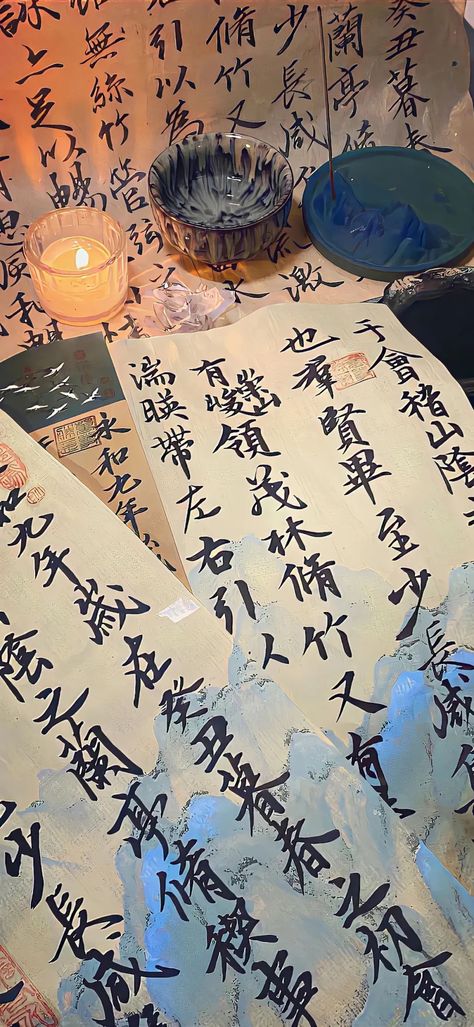 癸丑暮春
蘭亭脩
少長咸
脩竹又
流激
引以為
無絲竹管弦
詠亦足以暢
風和
于會稽山陰
也羣賢畢至少長咸
有崇山峻領茂林脩竹又有
湍暎帶左右引以
永和九年
和九年歲在癸丑暮春之初會
陰之蘭亭脩禊事
少長咸